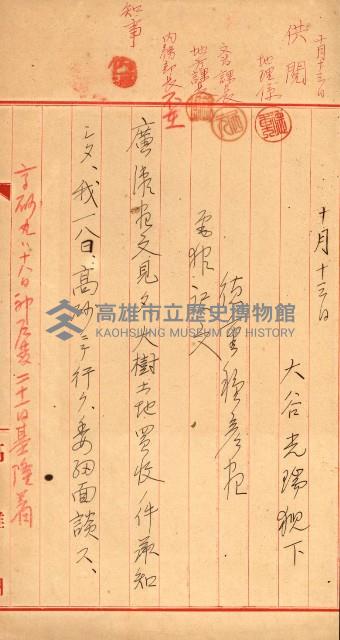 十月十三日
供閱
地理係
文書課長
地方課長
内務部長 不在
知事
十月十三日
大谷光瑞猊下
德重種彦宛
電報譯文
廣瀨宛文見タ大樹土地買收ノ件承知
シタ、我一八日、高砂ニテ行ク、委細面談ス、
高砂丸ハ十八日神戸發二十一日基隆着
高雄市立歷史博物館
KAOHSIUNG MUSEUM OF HISTORY
高雄州